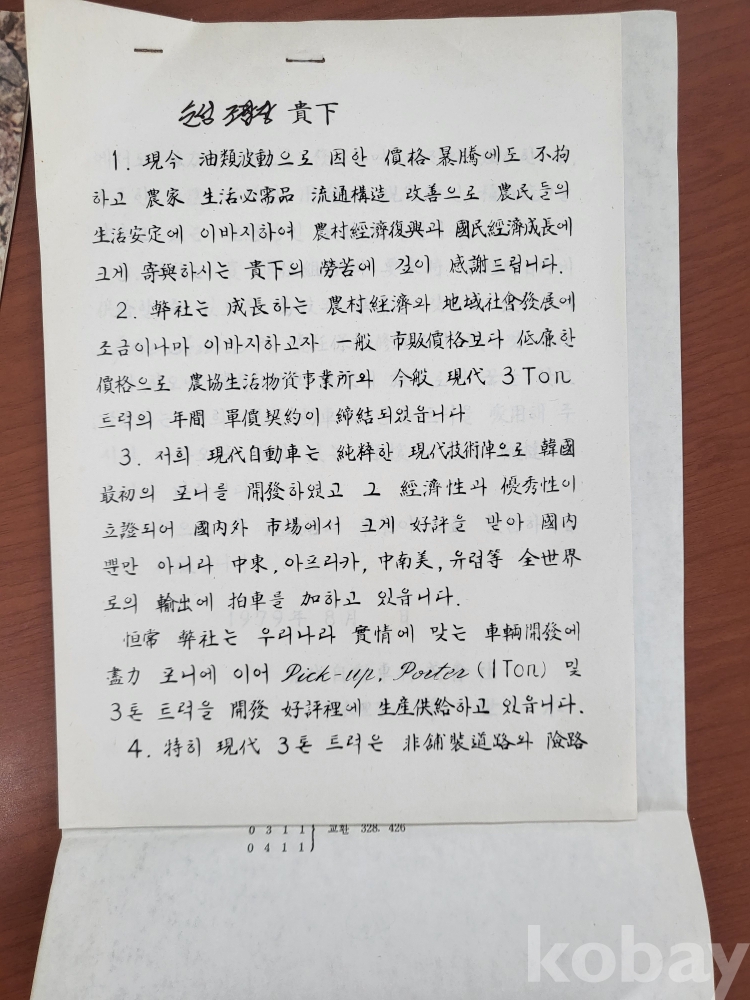 貴下
1. 現今 油類波動으로 因한 價格 暴騰에도 不拘
하고 農家 生活必需品 流通構造 改善으로 農民들의
生活安定에 이바지하여 農村經濟復興과 國民經濟成長에
크게 寄與하시는 貴下의 勞苦에 깊이 感謝드립니다.
2. 弊社는 成長하는 農村經濟와 地域社會發展에
조금이나마 이바지하고자 一般 市販價格보다 低廉한
價格으로 農協生活物資事業所와 今般 現代 3Ton
트럭의 年間 單價契約이 締結되었읍니다
3. 저희 現代自動車는 純粹한 現代技術陣으로 韓國
最初의 포니를 開發하였고 그 經濟性과 優秀性이
立證되어 國內外 市場에서 크게 好評을 받아 國內
뿐만 아니라 中東, 아프리카, 中南美, 유럽等 全世界
로의 輸出에 拍車를 加하고 있읍니다.
恒常 弊社는 우리나라 實情에 맞는 車輛開發에
盡力 포니에 이어 Pick-up, Porter (1Ton) 및
3톤 트럭을 開發 好評裡에 生産供給하고 있읍니다.
4. 特히 現代 3톤 트럭은 非舖裝道路와 險路
0 3 1 1 } 교환 328. 426
0 4 1 1
1979年 8月
kobay